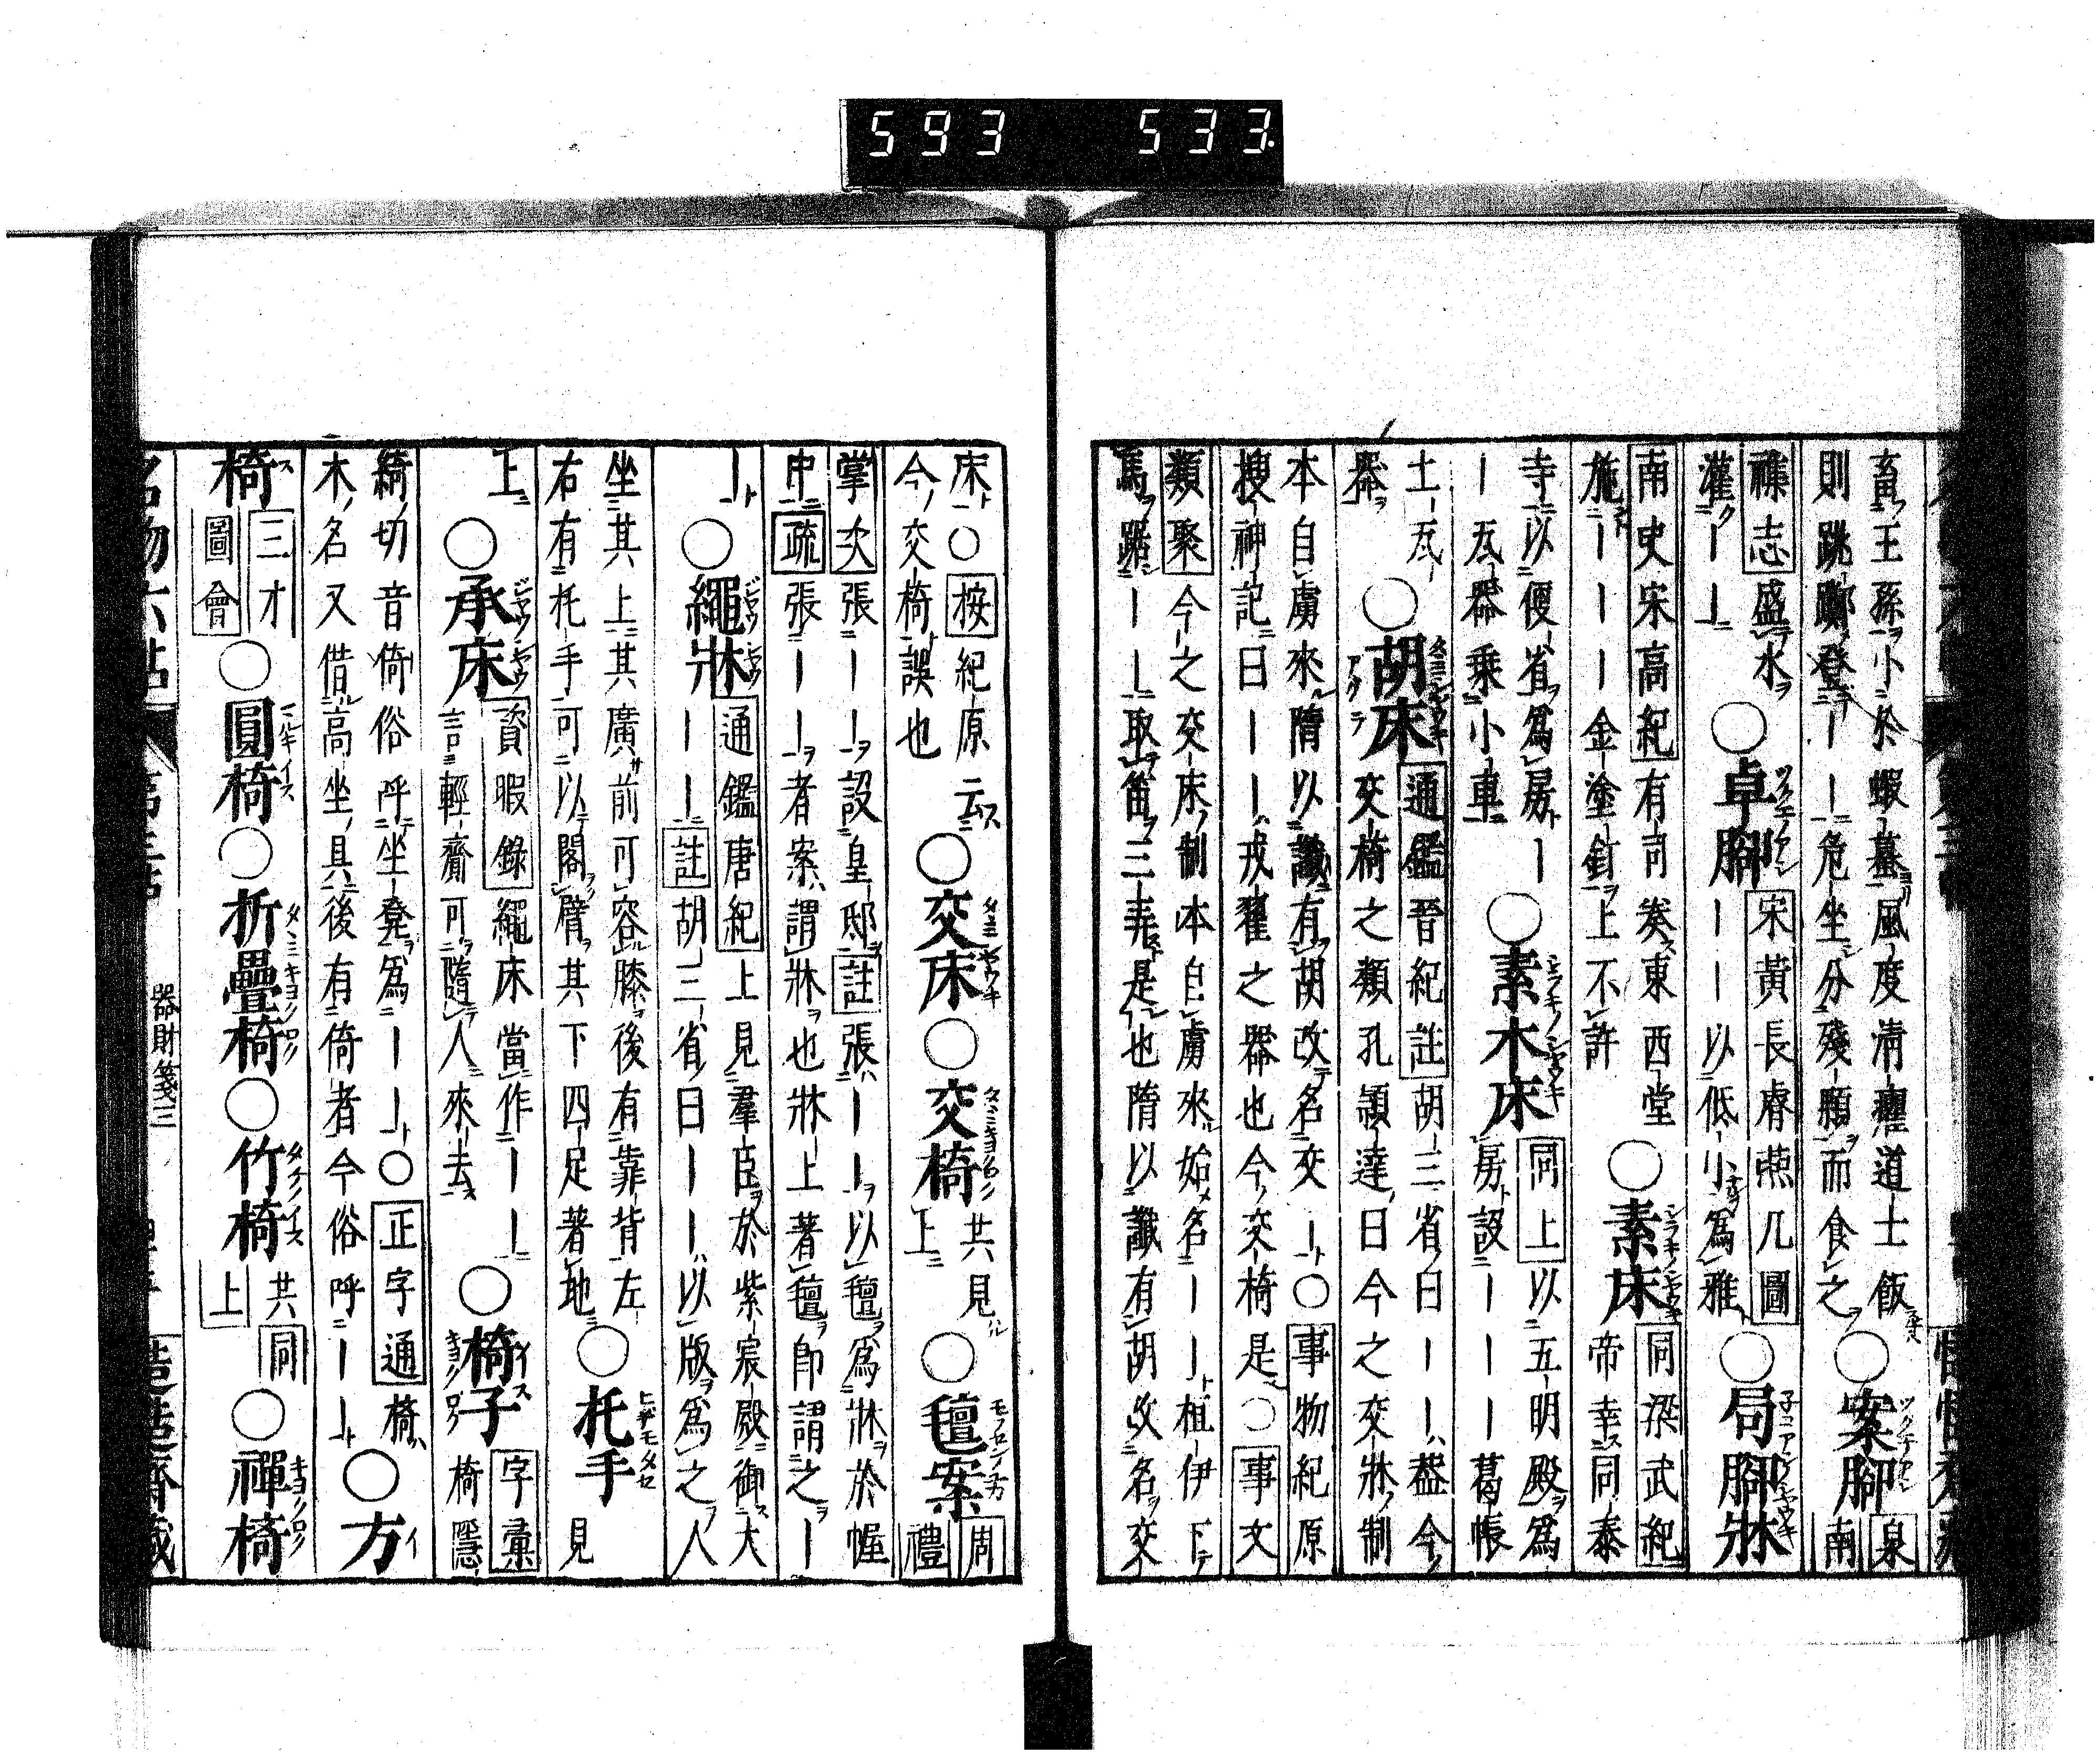 593 533
畜王孫小於蝦蟇風度淸癯道士飯
則跳躑登ーー危坐分殘願而食之○案脚泉南
襍志盛水○卓脚宋黃長睿燕几圖
灌ーーーー以低小爲雅○局脚牀
南史宋高紀有司奏東西堂
施ーーー金塗釘上不許○素床同梁武紀
帝幸同泰
寺以便省爲房ー
ー瓦器乘小車○素木床同上以五明殿爲
房設ーーー葛帳
土瓦
器○胡床通鑑晉紀註胡三省曰ーー蓋今
交椅之類孔頴達曰今之交牀制
本自虜來隋以讖有胡改名交ー○事物紀原
搜神記曰ーー戎翟之器也今交椅是○事文
類聚今之交床制本自虜來始名ーー桓伊下
馬踞ーー取笛三弄是也隋以讖有胡改名交
床○按紀原云
今交椅誤也○交床○交椅共見上○氊案周禮
掌次張ーー設皇邸註張ーー以氊爲牀於幄
中疏張ーー者案謂牀也牀上著氊卽謂之ー
ー○繩牀通鑑唐紀上見羣臣於紫宸殿御大
ーー註胡三省曰ーー以版爲之人
坐其上其廣前可容膝後有靠背左
右有托手可以閣臂其下四足著地○托手見
上○承床資暇錄繩床當作ーー
言輕齎可隨人來去○椅子字彙
椅隱
綺切音倚俗呼坐凳爲ーー○正字通椅
木名又借高坐具後有倚者今俗呼ーー○方
椅三才圖會○圓椅○折疊椅○竹椅共同上○禪椅
器財箋三